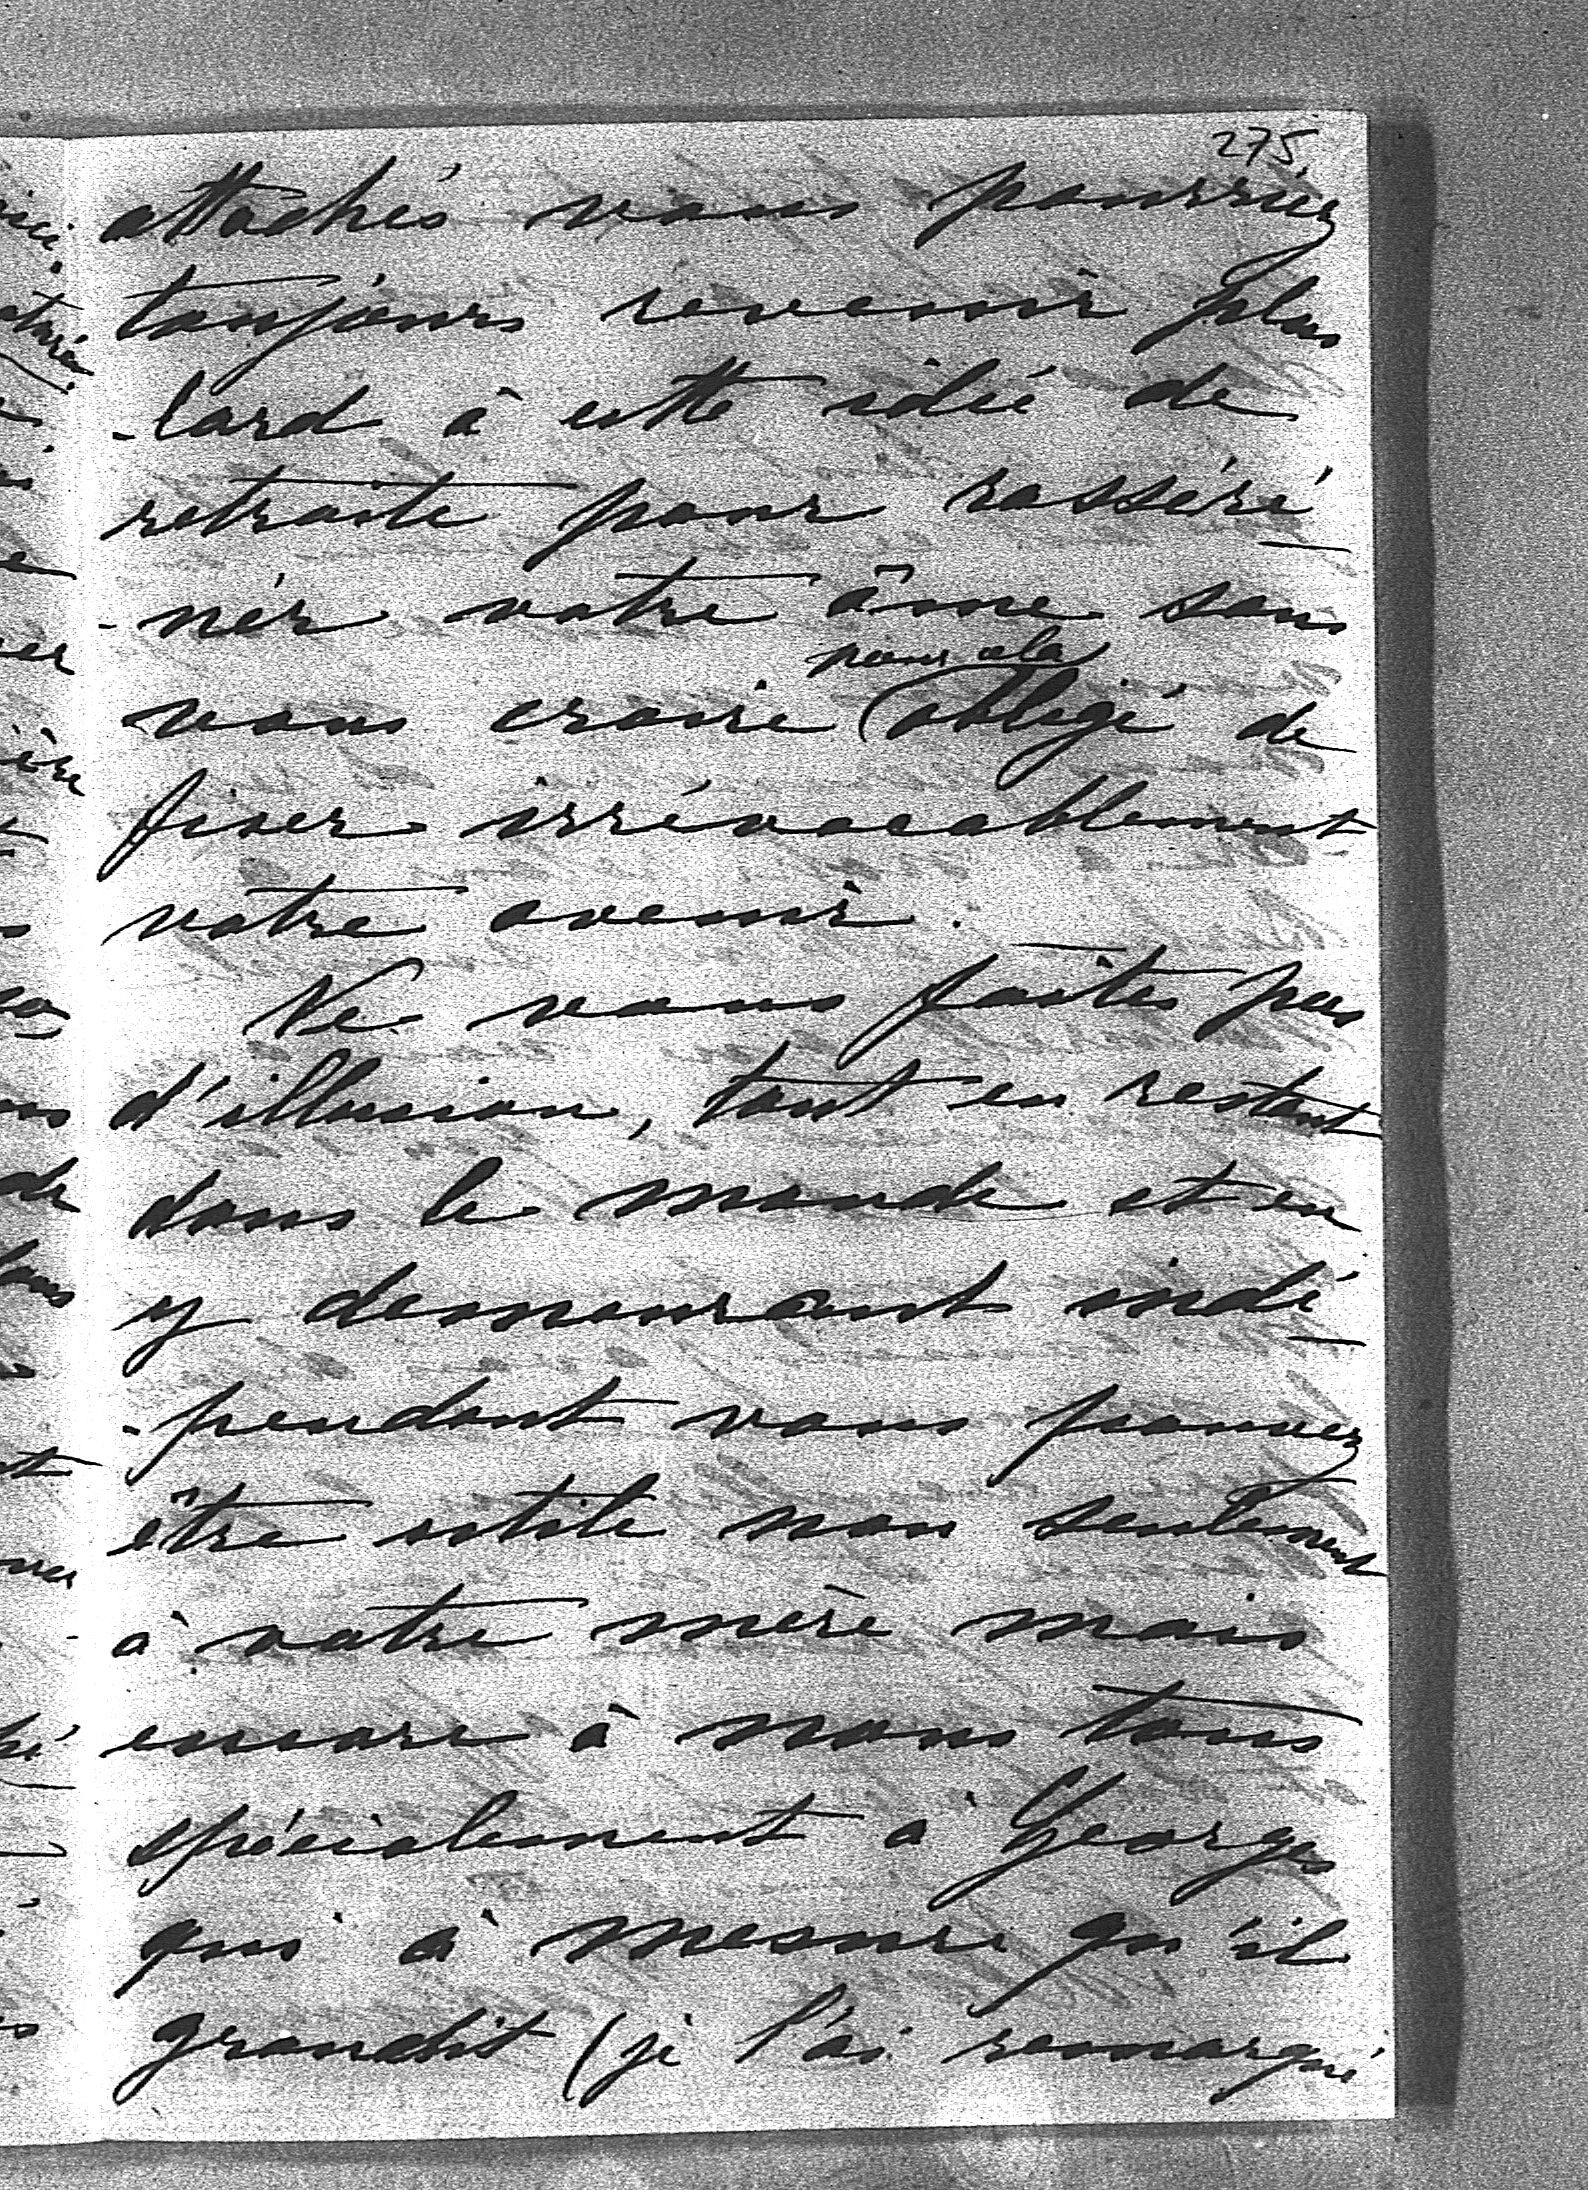 275
attachés vous pourriez
toujours revenir plus
-tard à cette idée de
retraite pour rasséré-
-nér votre âme sans
pour cela
vous croire (obligé de
fixer irrévocablement
votre avenir.
Ne vous faites pas
d'illusion, tout en restant
dans le monde et en
y demeurant indé-
-pendant vous pouvez
être utile non seulement
à votre mère mais
encore à nous tous
spécialement à Georges
qui à mesure qu'il
grandit (je l'ai remarqué